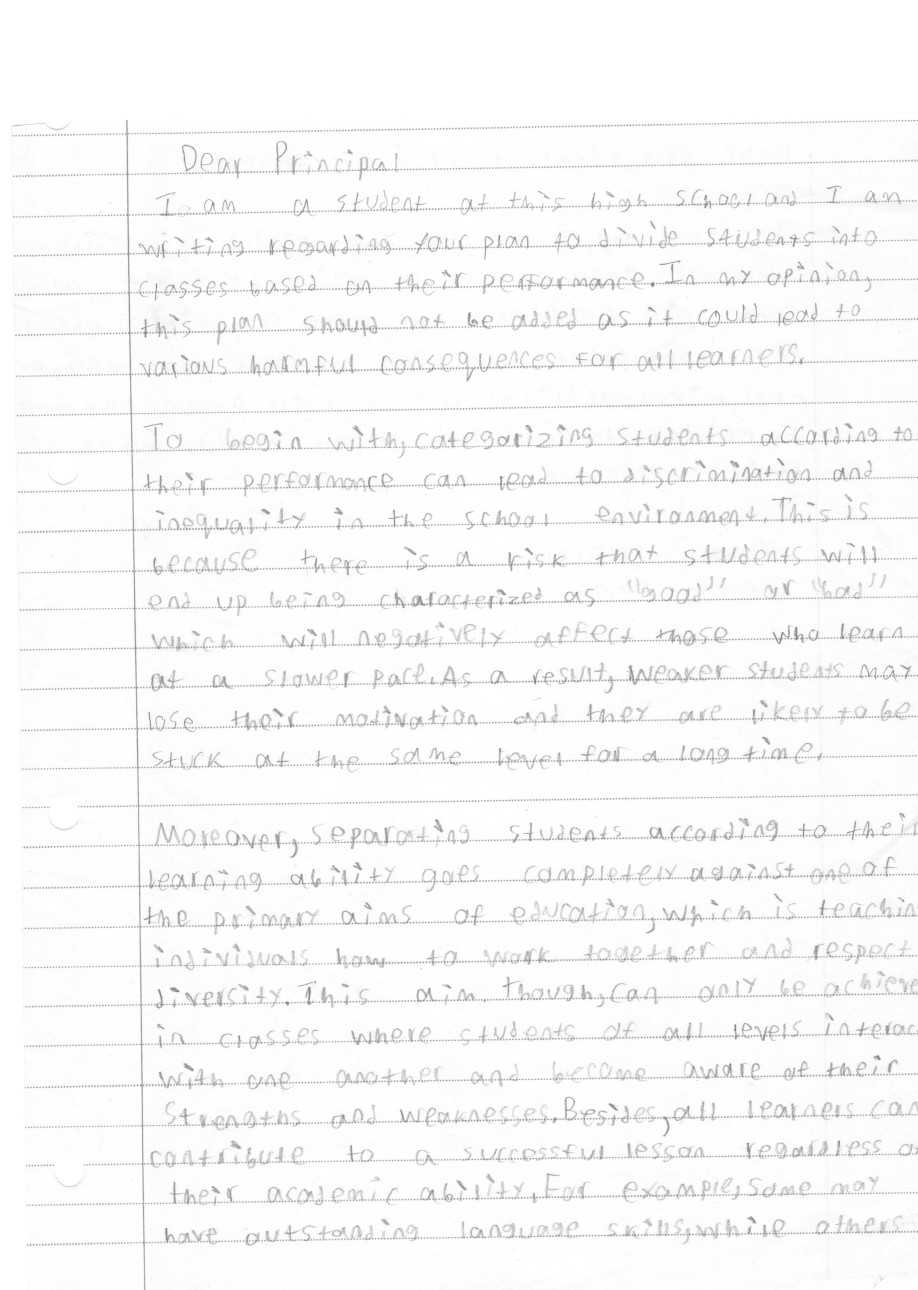 Dear Principal
I am a student at this high school and I am
writing regarding your plan to divide students into
classes based on their performance. In my opinion,
this plan should not be added as it could lead to
various harmful consequences for all learners.
To begin with, categorizing students according to
their performance can lead to discrimination and
inequality in the school environment. This is
because there is a risk that students will
end up being characterized as "good" or "bad"
which will negatively affect those who learn
at a slower pace. As a result, weaker students may
lose their motivation and they are likely to be
stuck at the same level for a long time.
Moreover, separating students according to their
learning ability goes completely against one of
the primary aims of education, which is teachin
individuals how to work together and respect
diversity. This aim though, can only be achieve
in classes where students of all levels interac
with one another and become aware of their
strengths and weaknesses. Besides, all learners can
contribute to a successful lesson regardless of
their academic ability. For example, some may
have outstanding language skills, while others